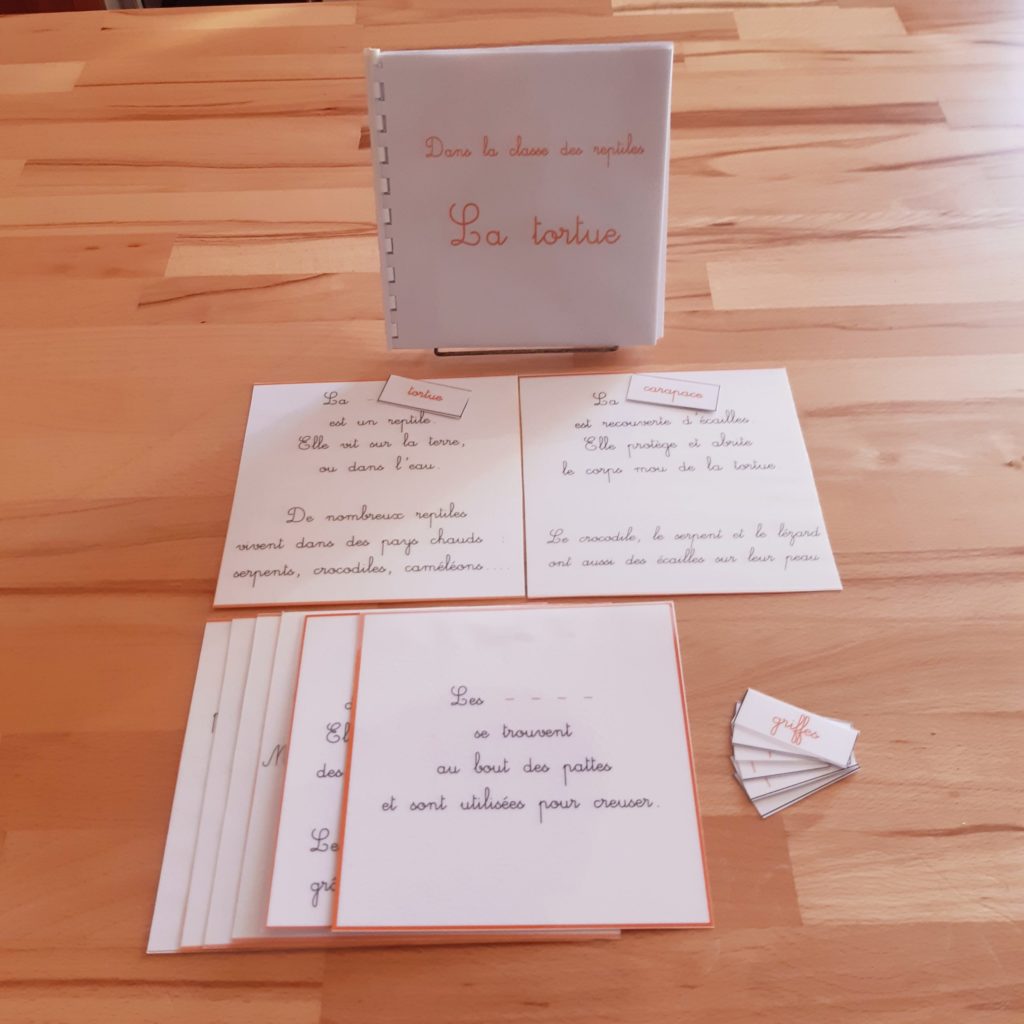 Dans la classe des reptiles
La tortue
La tortue
est un reptile.
Elle vit sur la terre,
ou dans l'eau.
De nombreux reptiles
vivent dans des pays chauds :
serpents, crocodiles, caméléons....
La carapace
est recouverte d'écailles.
Elle protège et abrite
le corps mou de la tortue.
Le crocodile, le serpent et le lézard
ont aussi des écailles sur leur peau.
El
des
Le
grâ
Les _ _ _ _
se trouvent
au bout des pattes
et sont utilisées pour creuser.
griffes